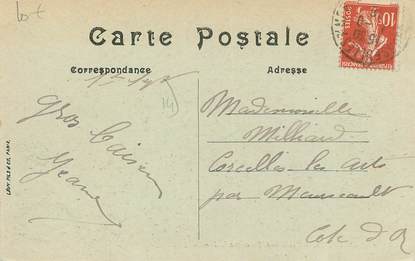 lot
Carte Postale
Correspondance
Adresse
10
14
Gros Baisers
Jeanne
Mademoiselle
Milliard
Corcelles les arts
par Meursault
Cote d'Or
LÉVY FILS & CIE, PARIS